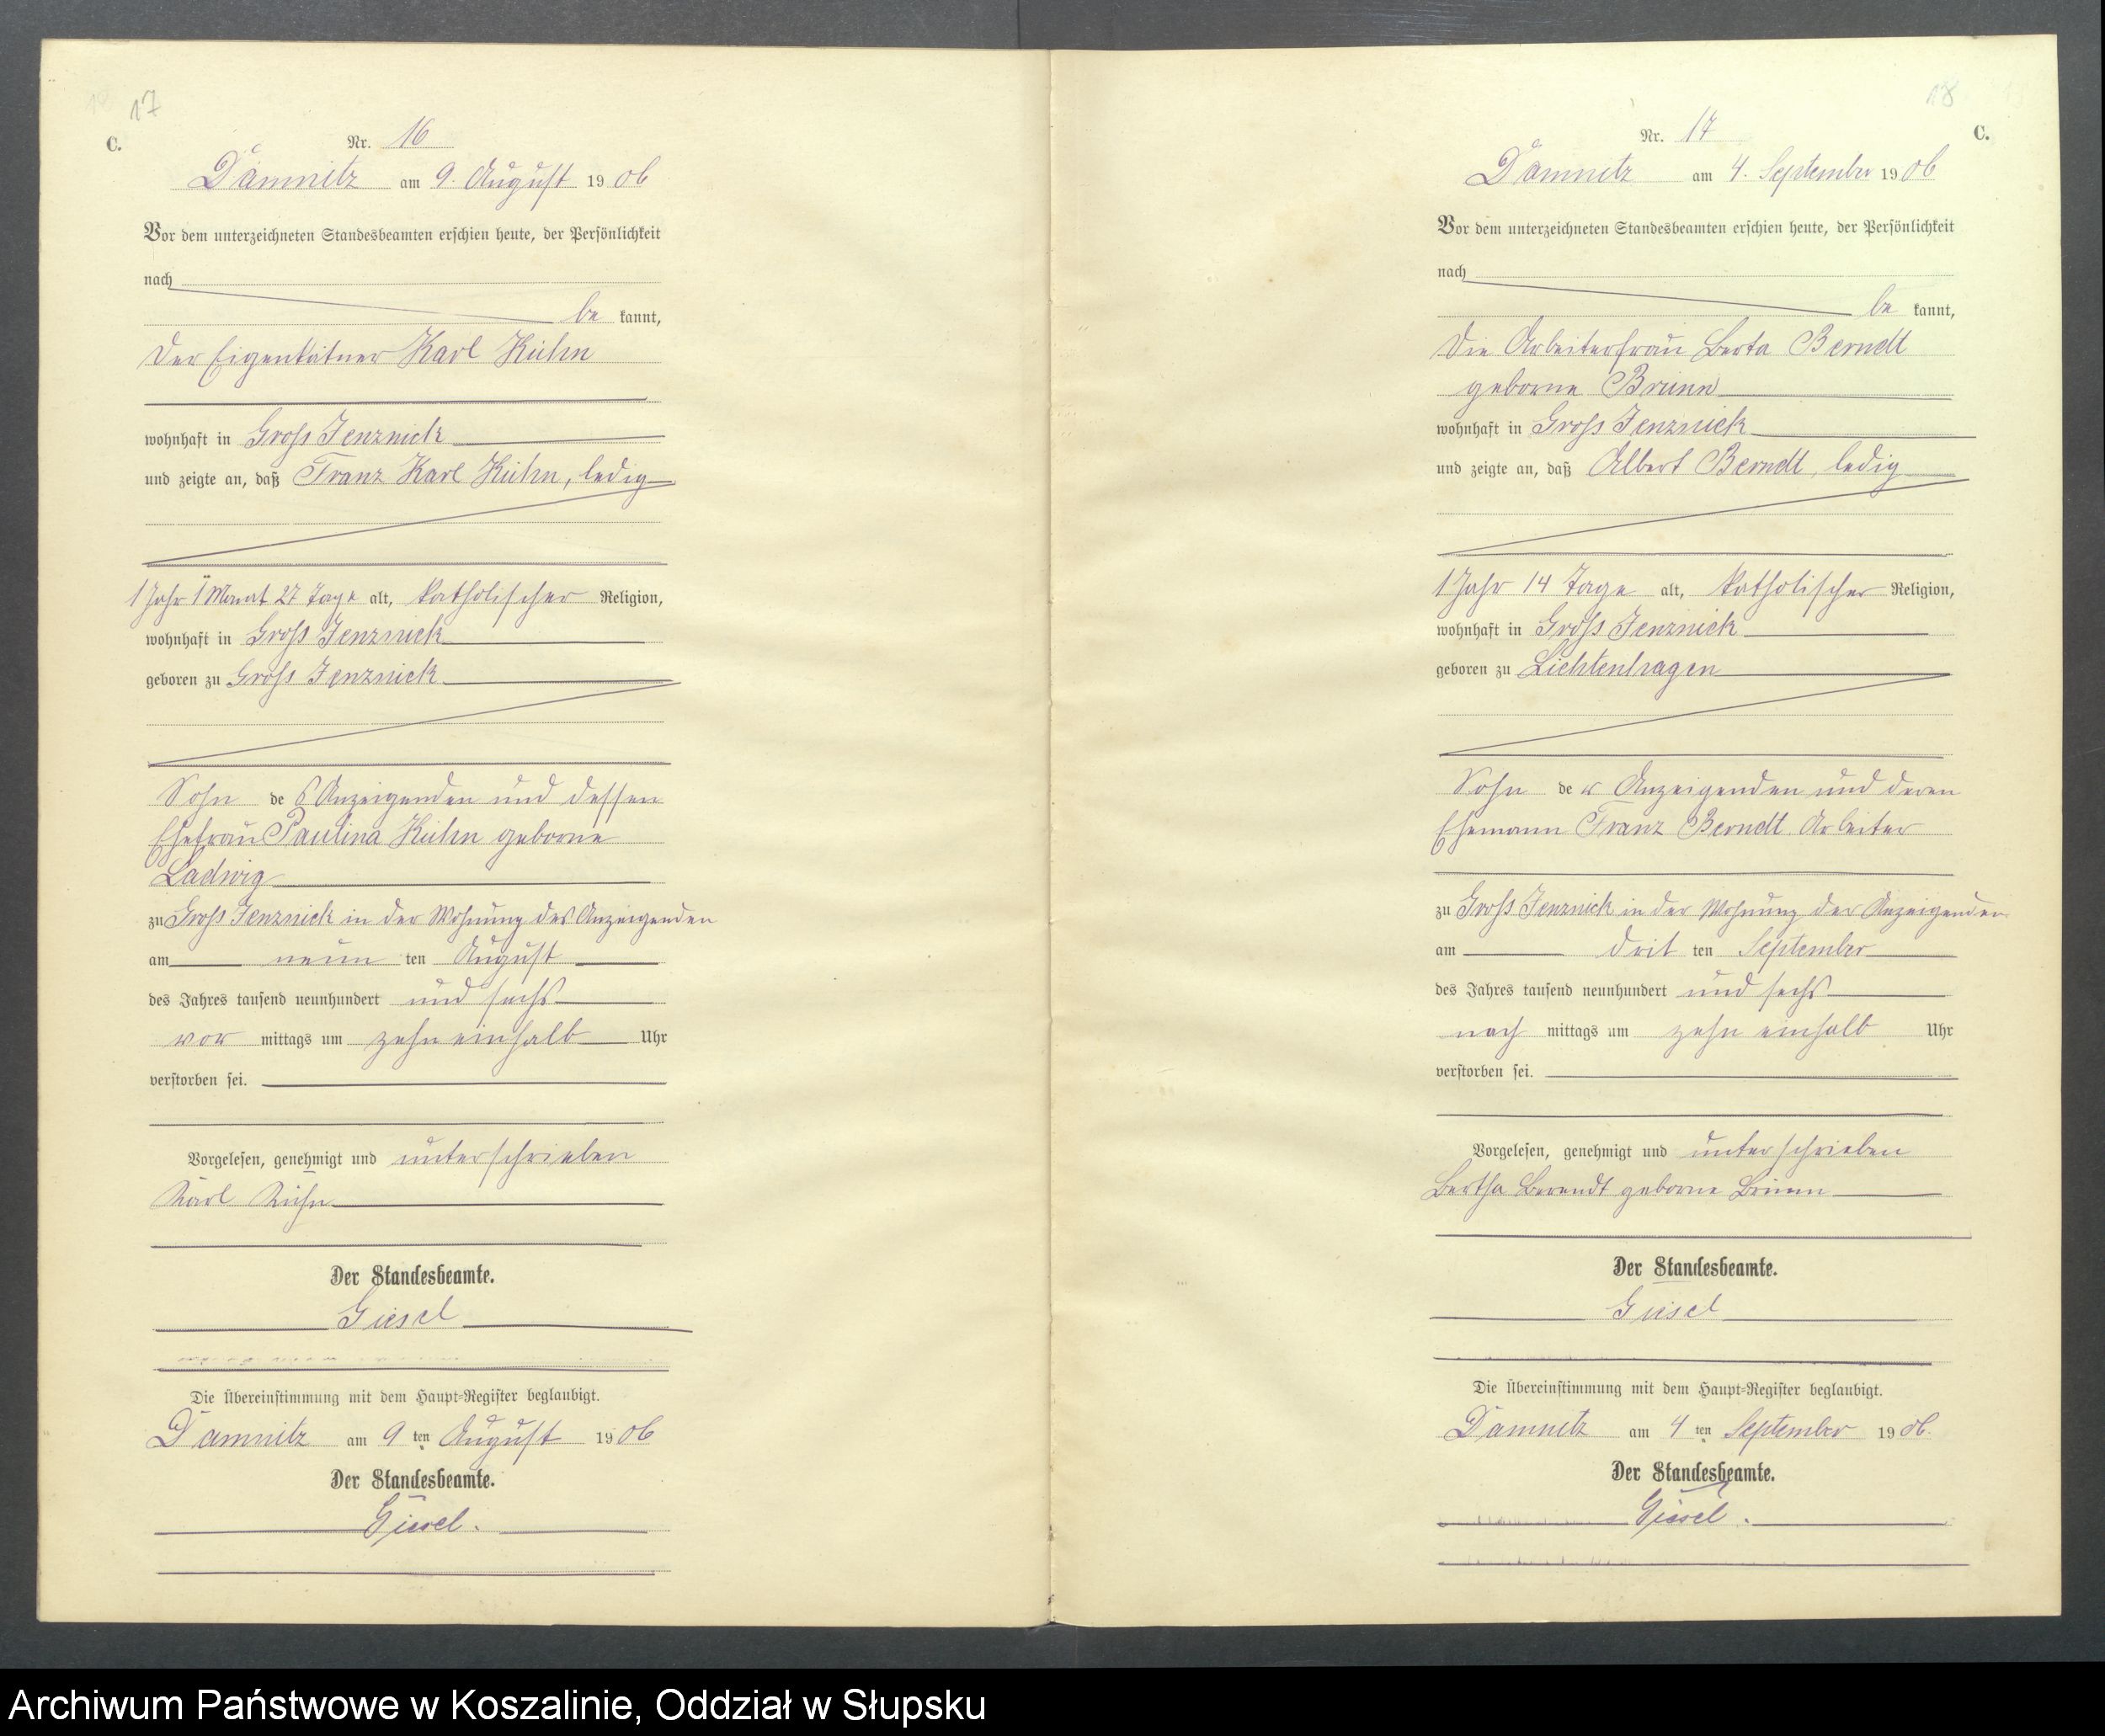 17
C.
Nr. 16
Damnitz am 9. August 1906
Vor dem unterzeichneten Standesbeamten erschien heute, der Persönlichkeit
nach
be kannt,
der Eigenkätner Karl Kühn
wohnhaft in Gross Jenznick
und zeigte an, daß Franz Karl Kühn, ledig
1 Jahr 1 Monat 27 Tage alt, katholischer Religion,
wohnhaft in Gross Jenznick
geboren zu Gross Jenznick
Sohn des Anzeigenden und dessen
Ehefrau Paulina Kühn geborne
Ladwig
zu Gross Jenznick in der Wohnung des Anzeigenden
am neun ten August
des Jahres tausend neunhundert und sechs
vor mittags um zehn einhalb Uhr
verstorben sei.
Vorgelesen, genehmigt und unterschrieben
Karl Kühn
Der Standesbeamte.
Giesel
Die Übereinstimmung mit dem Haupt-Register beglaubigt.
Damnitz am 9 ten August 1906
Der Standesbeamte.
Giesel.
18
C.
Nr. 17
Damnitz am 4. September 1906
Vor dem unterzeichneten Standesbeamten erschien heute, der Persönlichkeit
nach
be kannt,
die Arbeiterfrau Berta Berndt
geborne
wohnhaft in Gross Jenznick
und zeigte an, daß Albert Berndt, ledig
1 Jahr 14 Tage alt, katholischer Religion,
wohnhaft in Gross Jenznick
geboren zu Lichtenhagen
Sohn der Anzeigenden und deren
Ehemann Franz Berndt Arbeiter
zu Gross Jenznick in der Wohnung der Anzeigenden
am drit ten September
des Jahres tausend neunhundert und sechs
nach mittags um zehn einhalb Uhr
verstorben sei.
Vorgelesen, genehmigt und unterschrieben
Bertha Berendt geborne
Der Standesbeamte.
Giesel
Die Übereinstimmung mit dem Haupt-Register beglaubigt.
Damnitz am 4 ten September 1906.
Der Standesbeamte.
Giesel.
Archiwum Państwowe w Koszalinie, Oddział w Słupsku